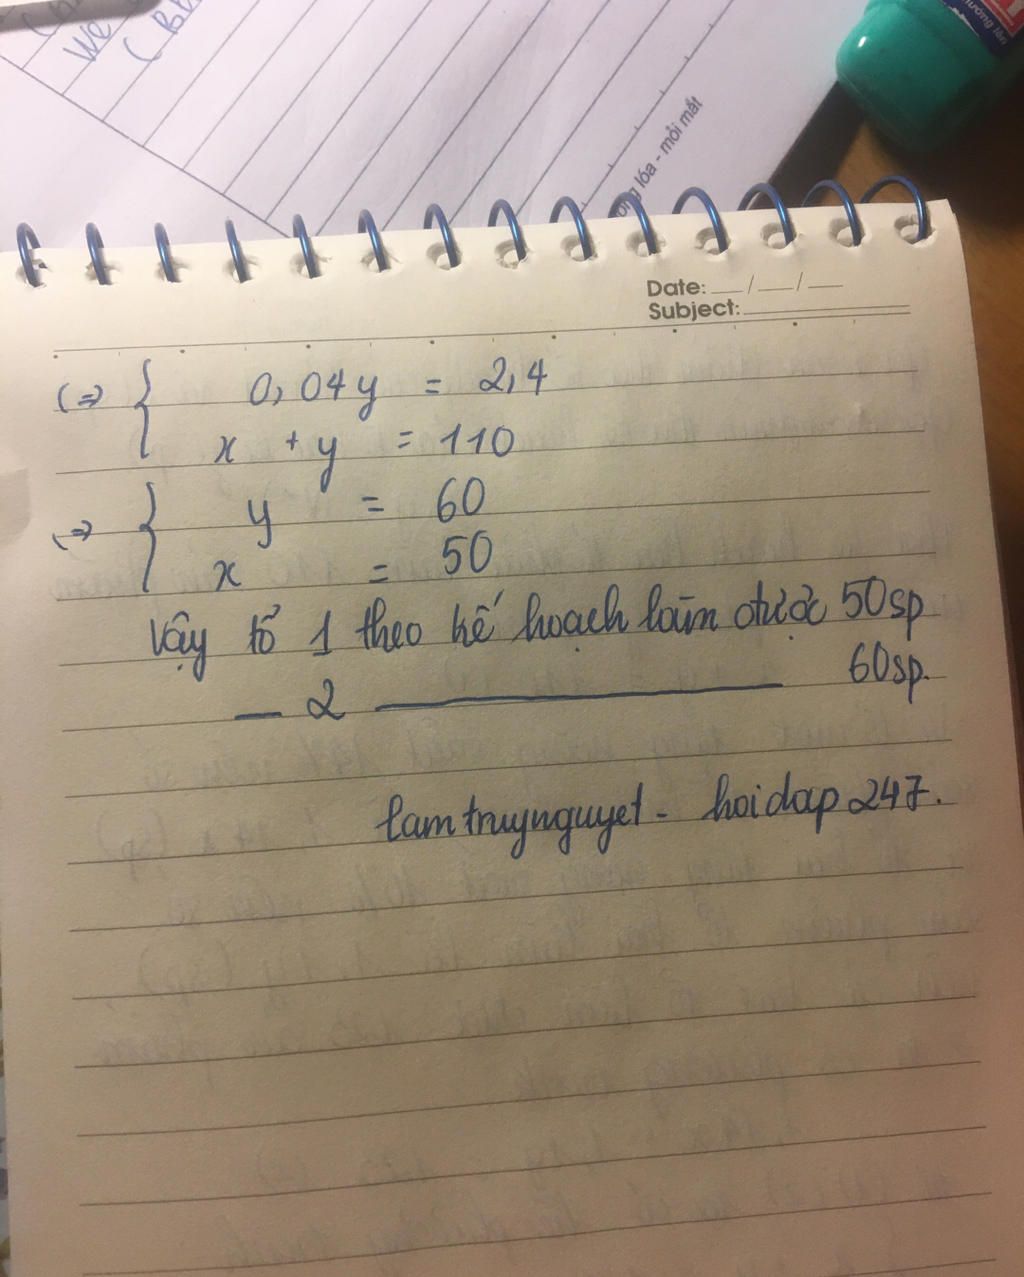 We
( Bh
ống lóa - mỏi mắt
hướng lên
Date: __/__/__
Subject:
(=> { 0,04y = 2,4
x + y = 110
(=> { y = 60
x = 50
Vậy tổ 1 theo kế hoạch làm được 50sp
— 2 ———————— 60sp.
lamtruynguyet - hoidap247.